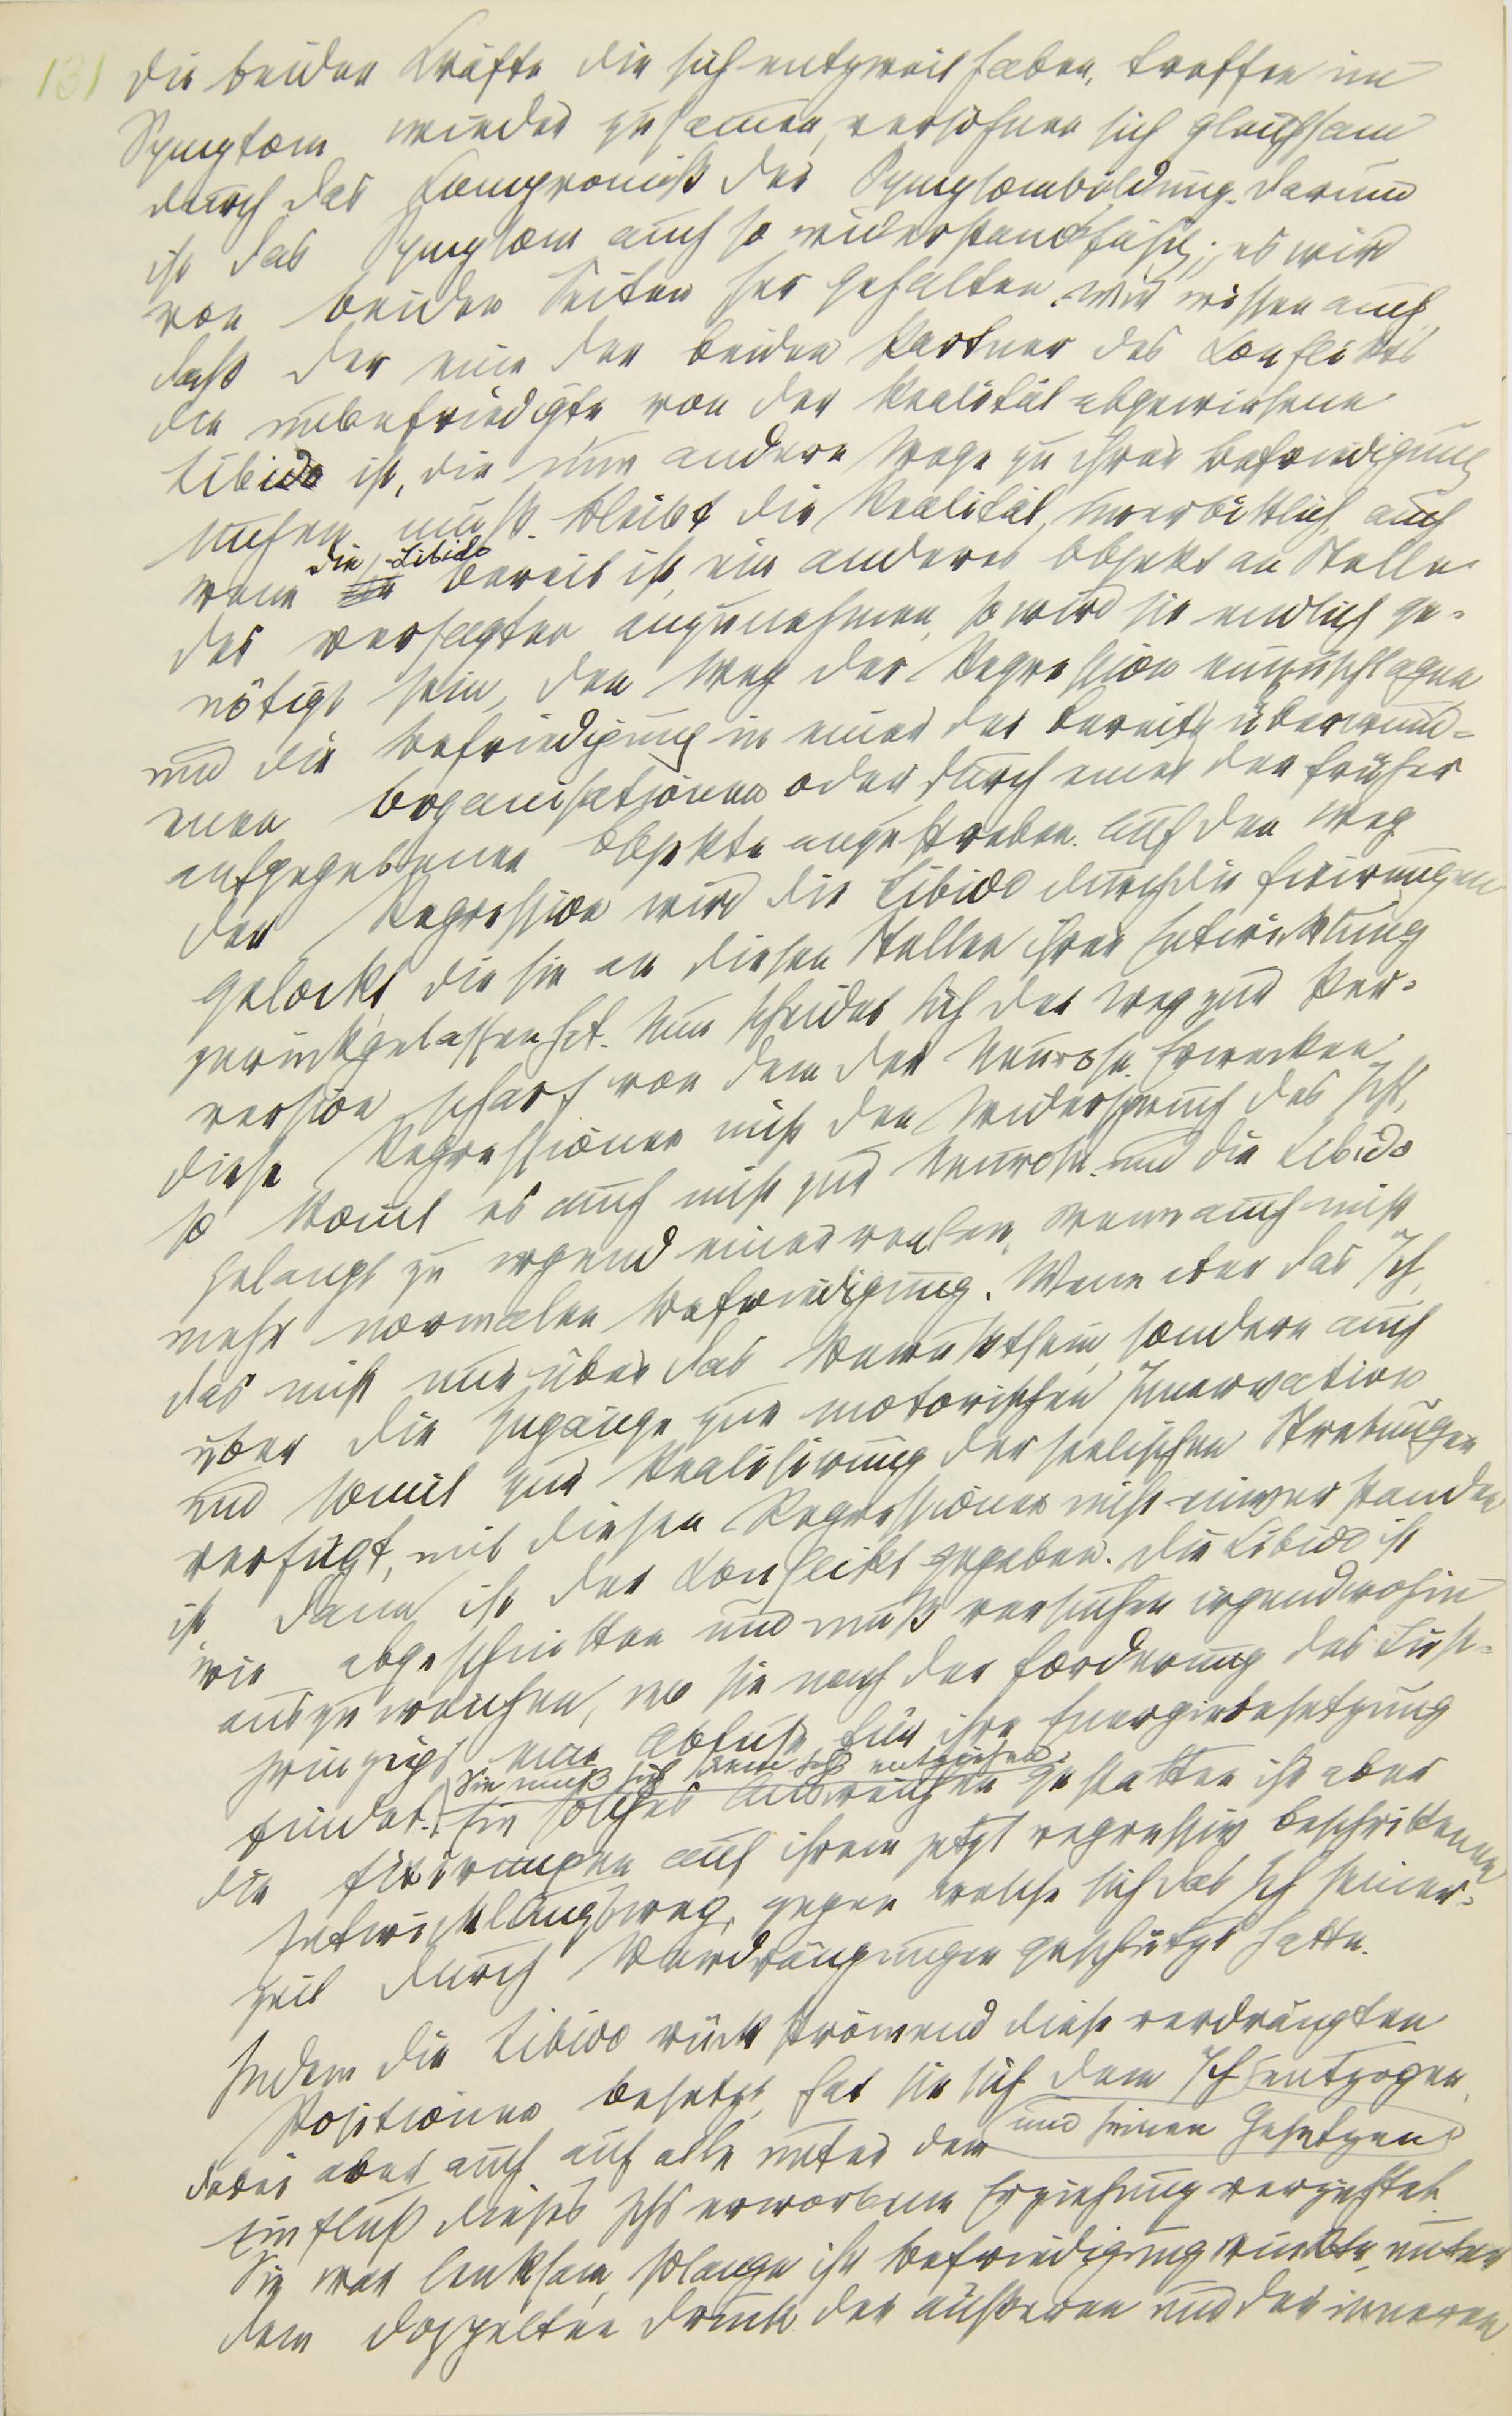 131
die beiden Kräfte die sich entzweit haben, treffen im
Symptom wieder zusam̅en, versöhnen sich gleichsam
durch das Kompromiß der Symptombildung. Darum
ist das Symptom auch so widerstandsfähig; es wird
von beiden Seiten her gehalten. Wir wissen auch,
daß der eine der beiden Partner des Konflikts
die unbefriedigte von der Realität abgewiesene
Libido ist, die nun andere Wege zu ihrer Befriedigung
suchen muß. Bleibt die Realität unerbittlich, auch
die Libido
wenn bereit ist, ein anderes Objekt an Stelle
des versagten anzunehmen, so wird sie endlich ge-
nötigt sein, den Weg der Regression einzuschlagen
und die Befriedigung in einer der bereits überwund-
enen Organisationen oder durch eines der früher
aufgegebenen Objekte anzustreben. Auf den Weg
der Regression wird die Libido durch die Fixirungen
gelockt, die sie an diesen Stellen ihrer Entwicklung
zurückgelassen hat. Nun scheidet sich der Weg zur Per-
version scharf von dem der Neurose. Erwecken
diese Regressionen nicht den Widerspruch des Ichs,
so kom̅t es auch nicht zur Neurose und die Libido
gelangt zu irgend einer realen, wenn auch nicht
mehr normalen Befriedigung. Wenn aber das Ich,
das nicht nur über das Bewußtsein, sondern auch
über die Zugänge zur motorischen Innervation
und somit zur Realisirung der seelischen Strebungen
verfügt, mit diesen Regressionen nicht einverstanden
ist, dann ist der Konflikt gegeben. Die Libido ist
wie abgeschnitten und muß versuchen irgendwohin
auszuweichen, wo sie nach der Forderung des Lust-
prinzips einen Abfluß für ihre Energiebesetzung
Sie muß sich dem Ich entziehen.
findet. Ein solches Ausweichen gestatten ihr aber
die Fixirungen auf ihrem jetzt regressiv beschrittenen
Entwicklungsweg, gegen welche sich das Ich seiner-
zeit durch Verdrängungen geschützt hatte.
Indem die Libido rückströmend diese verdrängten
Positionen besetzt, hat sie sich dem Ich entzogen,
und seinen Gesetzen
dabei aber auch auf alle unter dem
Einfluß dieses Ichs erworbene Erziehung verzichtet.
Sie war lenksam, solange ihr Befriedigung winkte, unter
dem doppelten Druck der äußeren und der inneren